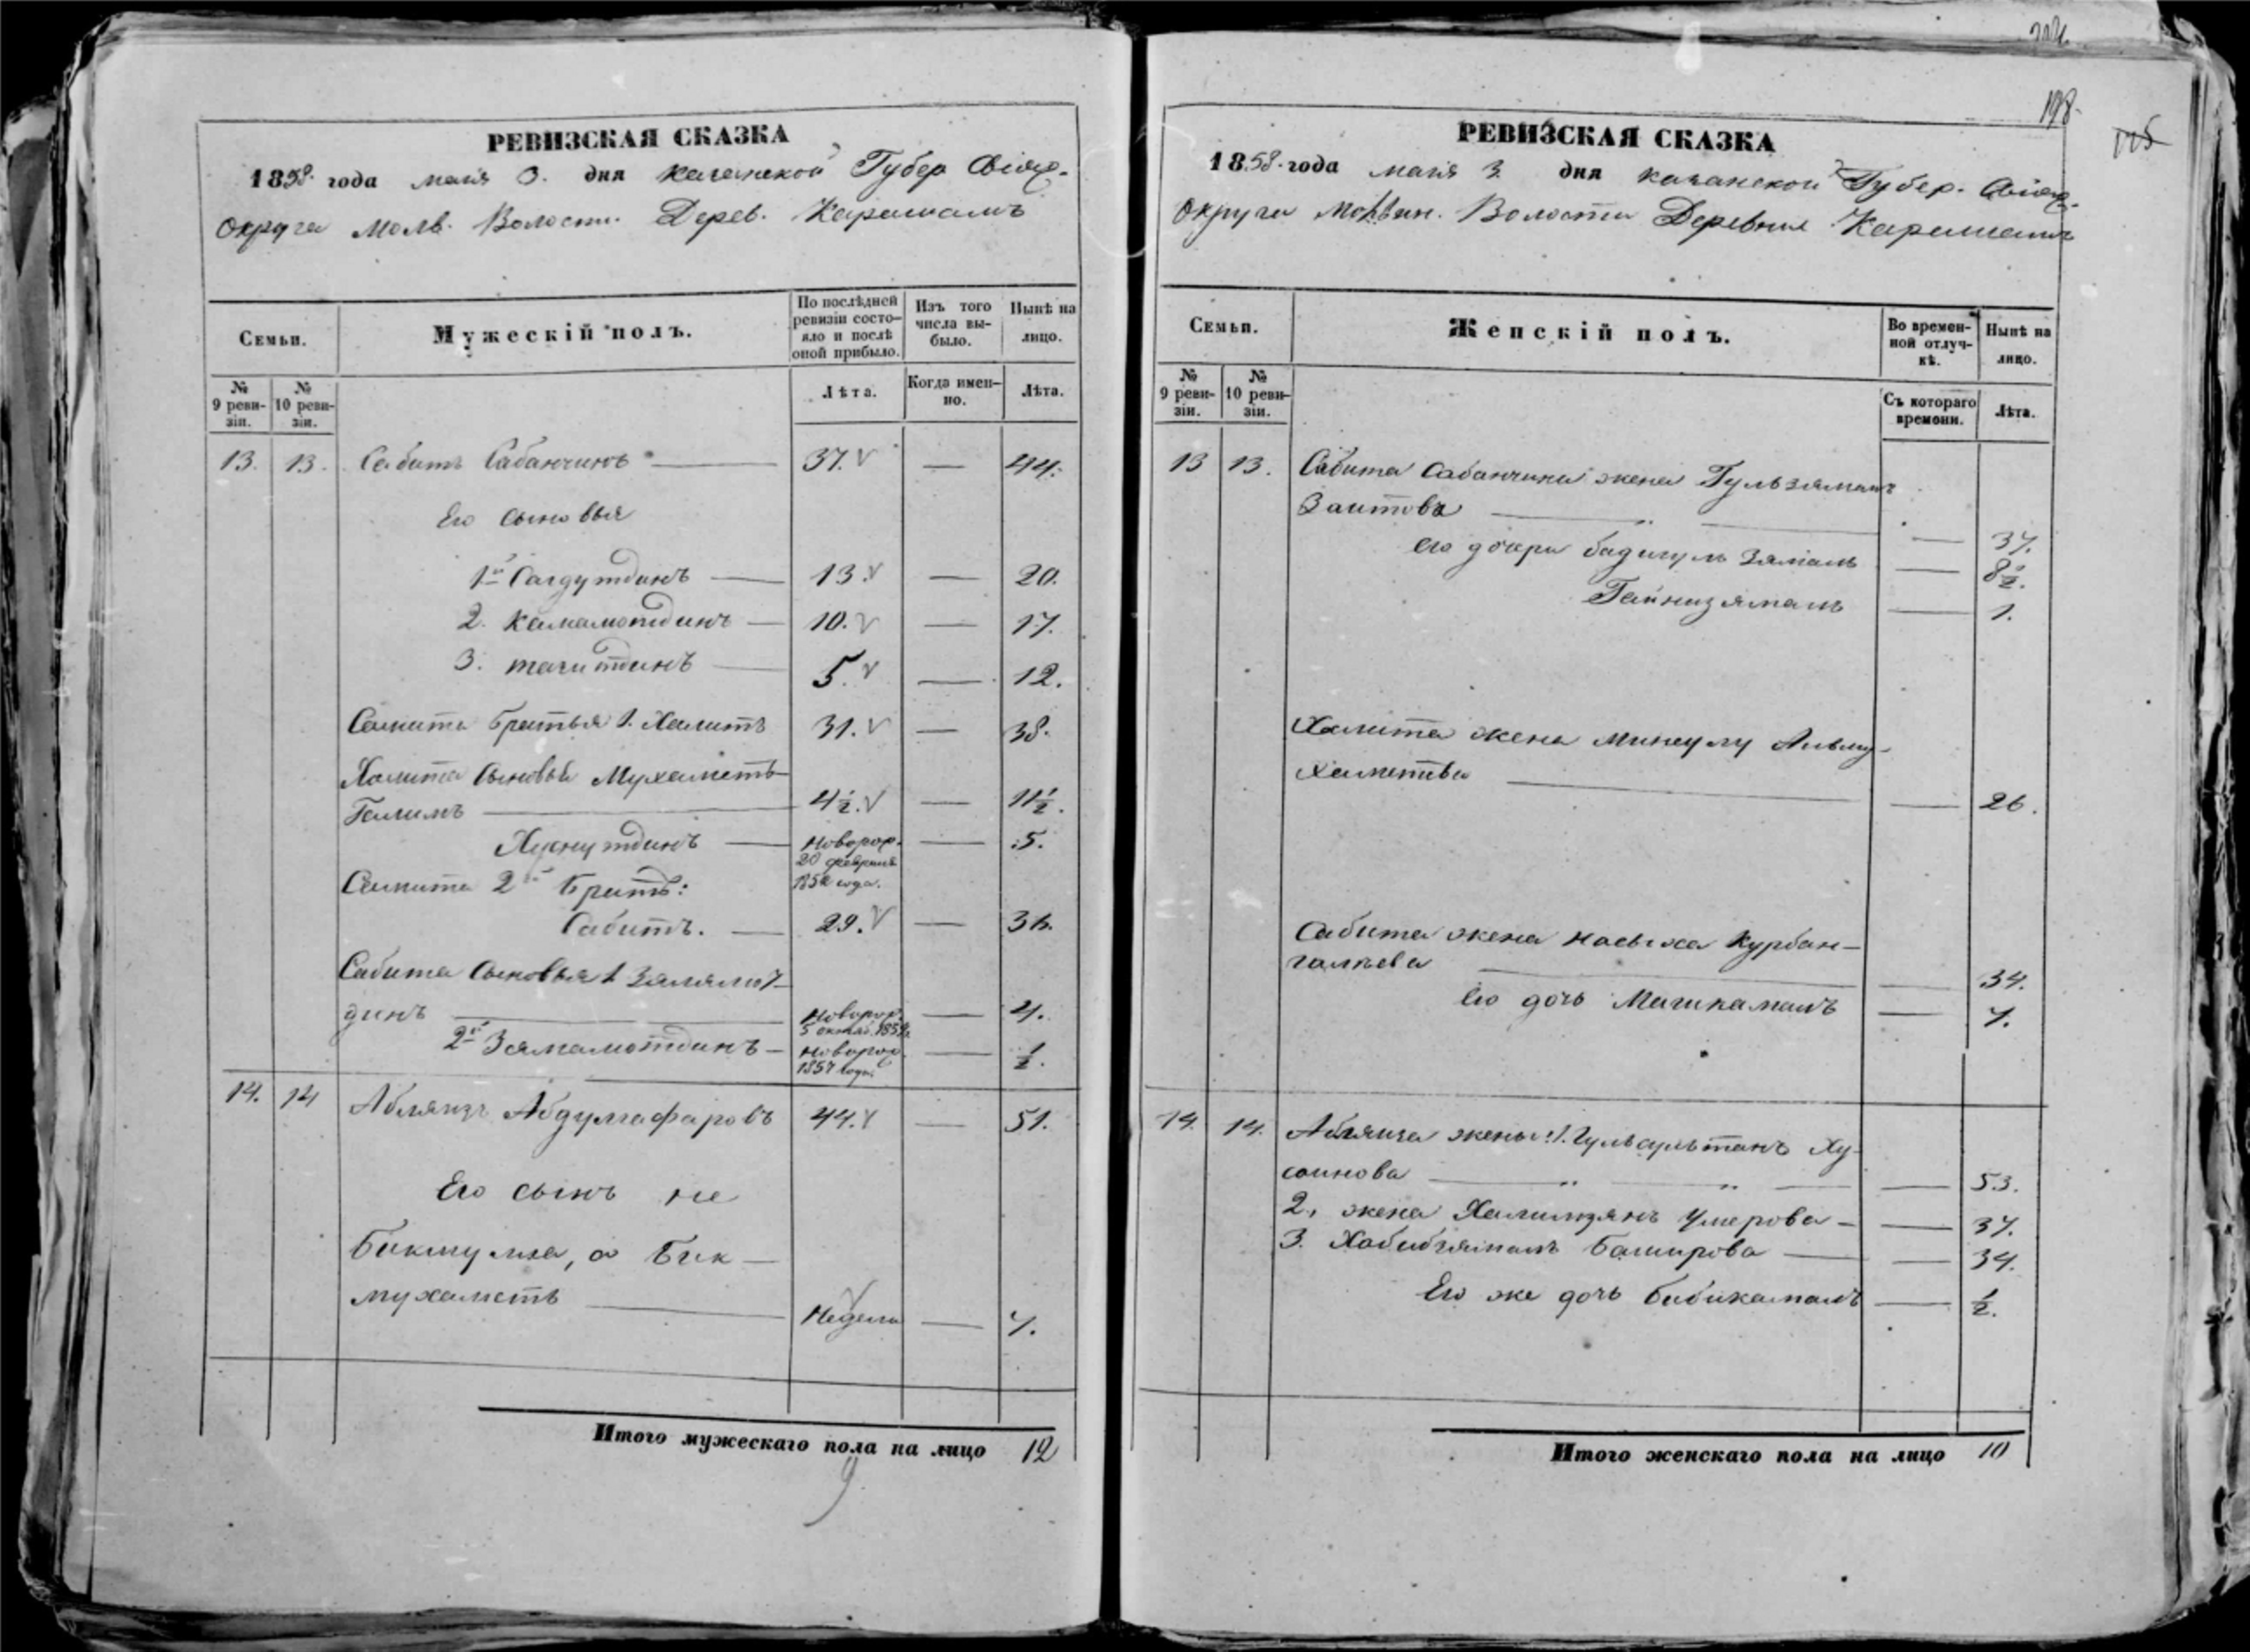 198.
РЕВИЗСКАЯ СКАЗКА
1858 года маія 3. дня Казанской Губер Свіяж.
округа Молв. Волости. Дерев. Карашамъ
Семьи.
Мужескій полъ.
По послѣдней ревизіи состо-
яло и послѣ оной прибыло.
Изъ того числа вы-
было.
Нынѣ на лицо.
№ 9 реви-
зіи.
№ 10 реви-
зіи.
Лѣта.
Когда имен-
но.
Лѣта.
13. 13. Сабитъ Сабанчинъ — 37. — 44.
Его сыновья
1й Сагдутдинъ — 13. — 20.
2. Камалотдинъ — 10. — 17.
3. тагитдинъ — 5. — 12.
братья 1. Халитъ 31. — 38.
Халита сыновья Мухаметъ-
Галимъ — 4½. — 11½.
Хуснутдинъ — Новорож. — 5.
20 февраля
года.
2й братъ:
Сабитъ. — 29. — 36.
Сабита сыновья 1 Залялют-
динъ — Новорож. — 4.
5 октяб.
2й Замалютдинъ — новорож. — ½.
1857 года.
14. 14 Аблязъ Абдулгафаровъ 44. — 51.
Его сынъ не
Бикмулла, а Бик-
мухаметь — Недели — 7.
Итого мужескаго пола на лицо 12
РЕВИЗСКАЯ СКАЗКА
1858 года маія 3 дня казанской Губер. Свіяж.
округа Молвин. Волости Деревни Карашамъ
Семьи.
Женскій полъ.
Во времен-
ной отлуч-
кѣ.
Нынѣ на лицо.
№ 9 реви-
зіи.
№ 10 реви-
зіи.
Съ котораго времени.
Лѣта.
13 13. Сабита Сабанчина жена Гульзямалъ
Заитова — 37.
его дочри бадигуль Зямаль — 8½.
Гайнизямаль — 1.
Халита жена Минсулу Альму-
хаметева — 26.
Сабита жена насыха Курбан-
галеева — 34.
Его дочь Магикамалъ — 7.
14. 14. Аблязя жены: 1. Гульсултанъ Ху-
саинова — 53.
2, жена Халимзянъ Умерова — 37.
3. Хабибзямалъ Баширова — 34.
Его же дочь бибикамалъ — ½.
Итого женскаго пола на лицо 10